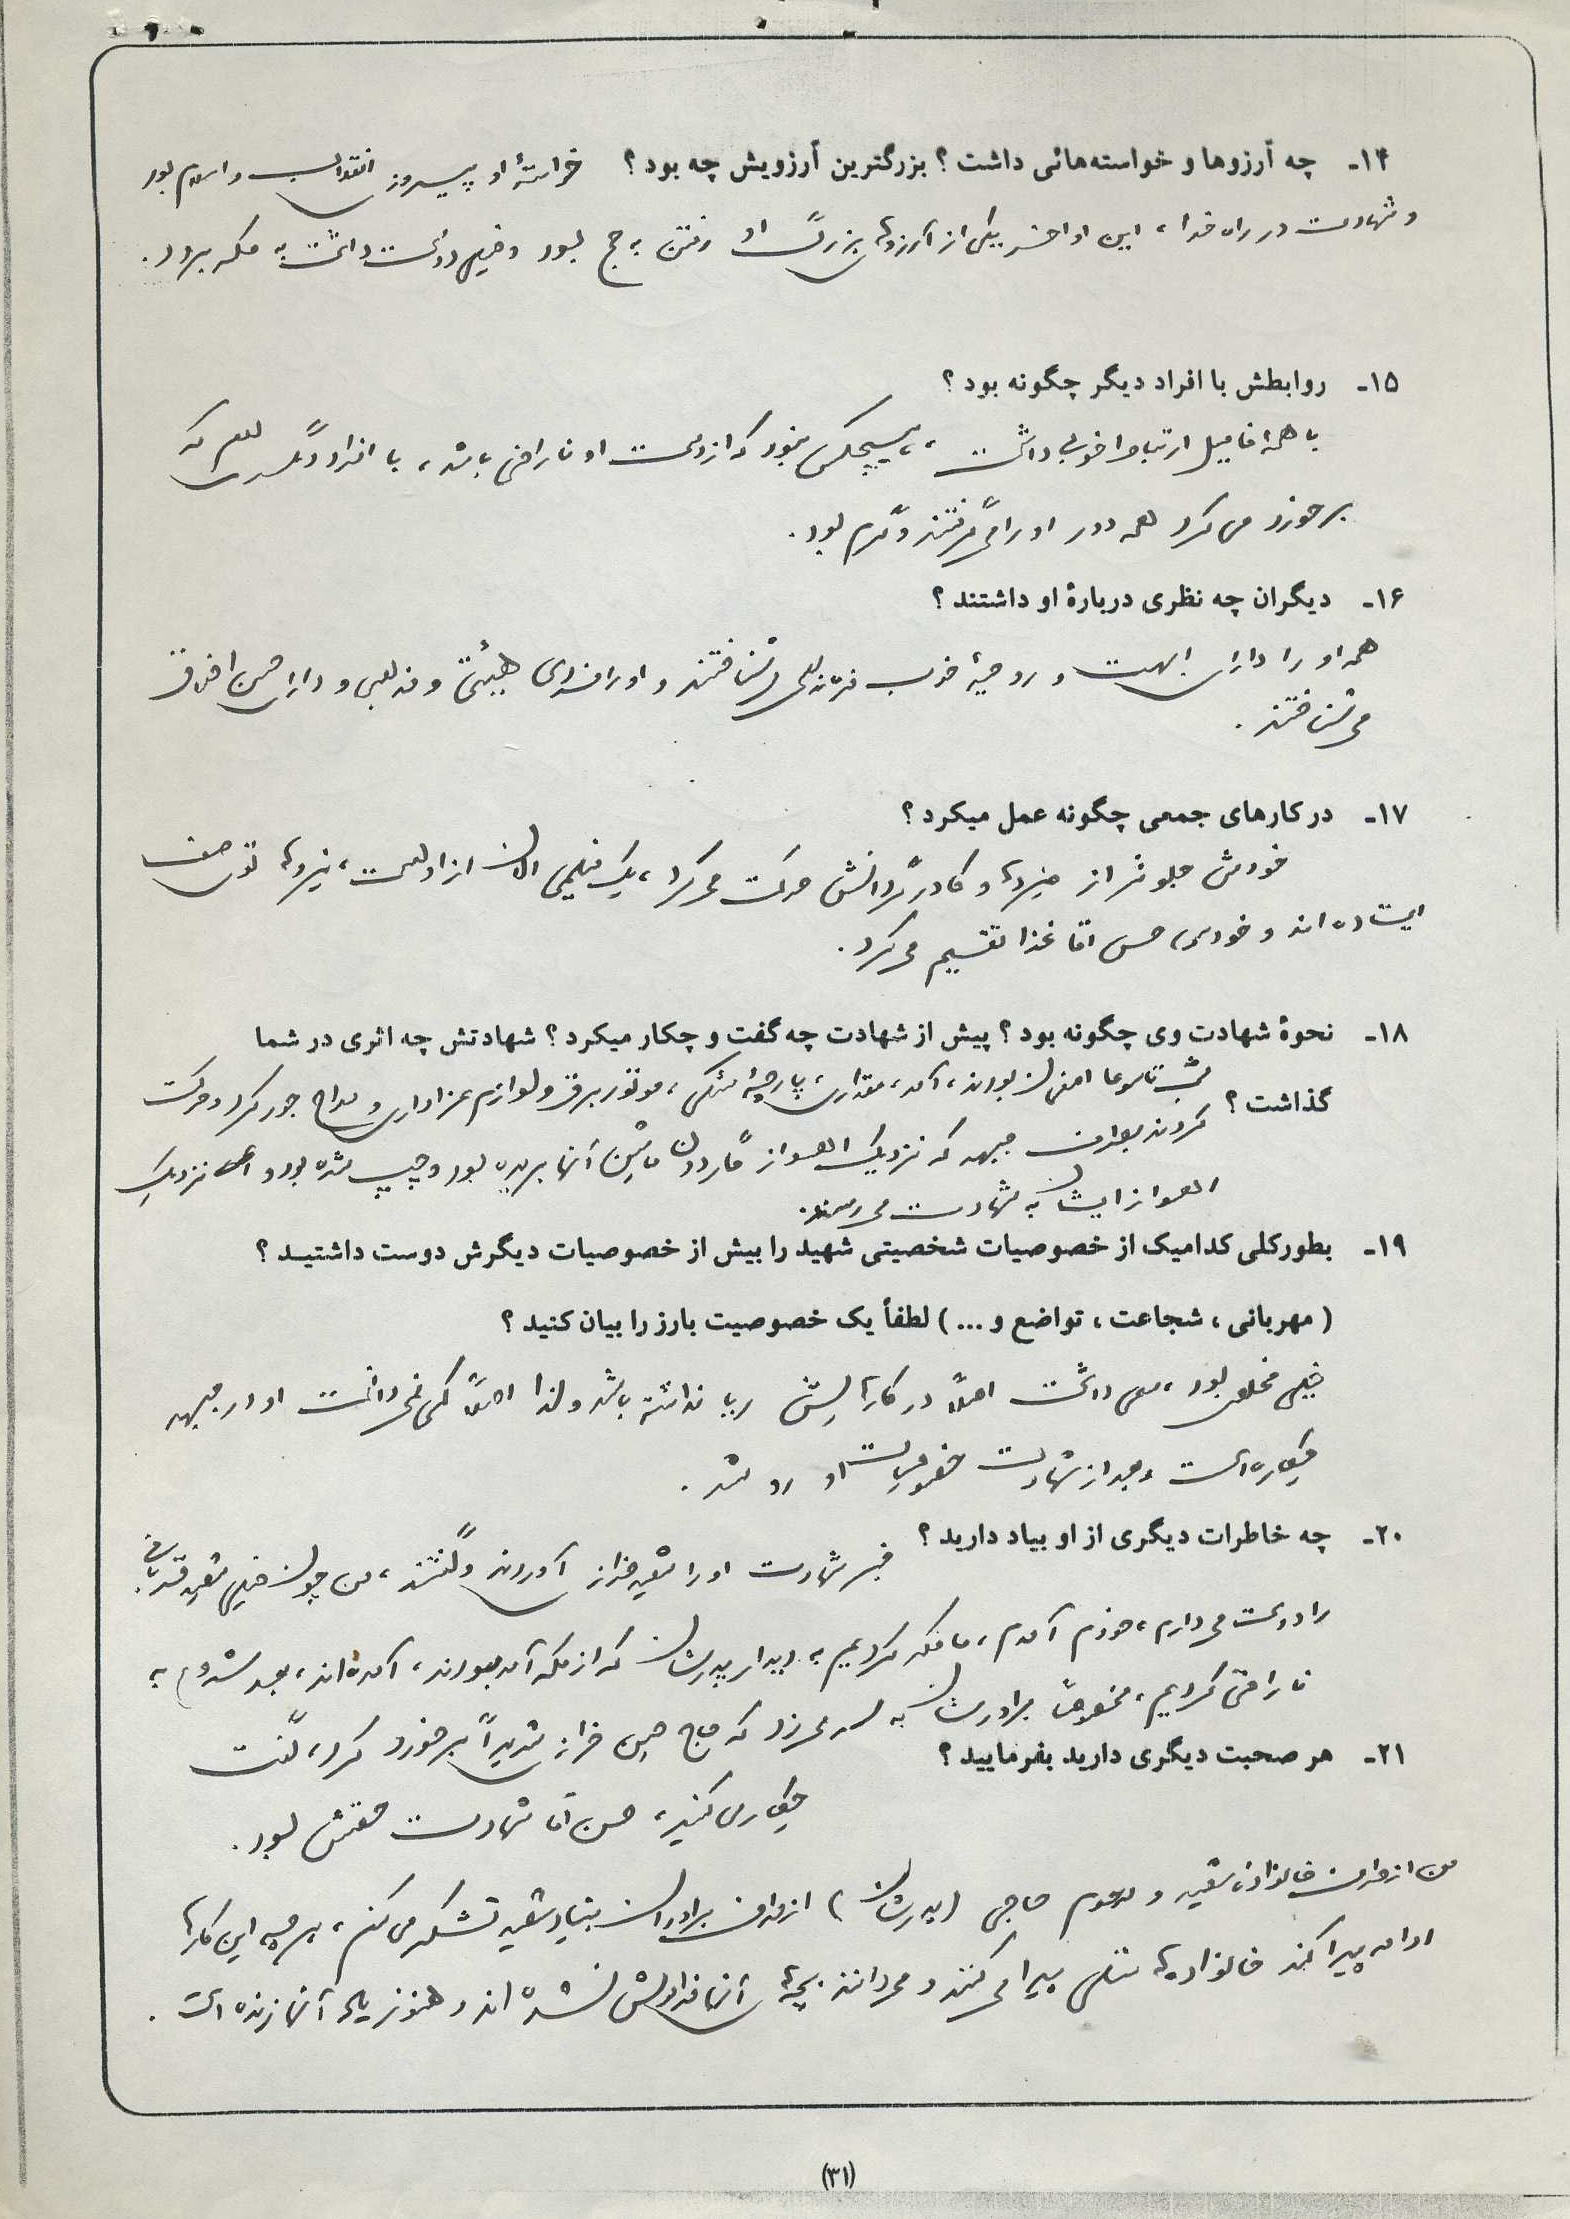 ۱۴- چه آرزوها و خواسته‌هائی داشت ؟ بزرگترین آرزویش چه بود ؟ خواستهٔ او پیروزی انقلاب و اسلام بود
و شهادت در راه خدا ، این اواخر یکی از آرزوهای بزرگ او رفتن به حج بود و خیلی دوست داشت به مکه برود .
۱۵- روابطش با افراد دیگر چگونه بود ؟
با همهٔ فامیل ارتباط خوبی داشت ، هیچکس نبود که از دست او ناراضی باشد ، با افراد دیگر هم که
برخورد می کرد همه دور او را می گرفتند و گرم بود .
۱۶- دیگران چه نظری دربارهٔ او داشتند ؟
همه او را دارای ابهت و روحیهٔ خوب فرماندهی می شناختند و او را فردی هیئتی و مذهبی و دارای حسن اخلاق
می شناختند .
۱۷- در کارهای جمعی چگونه عمل میکرد ؟
خودش جلوتر از نیروها و کادر گردانش حرکت می کرد ، یک فیلمی الان از او هست ، نیروها توی صف
ایستاده اند و خودِ حسن آقا غذا تقسیم می کرد .
۱۸- نحوهٔ شهادت وی چگونه بود ؟ پیش از شهادت چه گفت و چکار میکرد ؟ شهادتش چه اثری در شما
گذاشت ؟ شب تاسوعا اصفهان بودند ، آمد ، مقداری پارچهٔ مشکی ، موتور برق و لوازم عزاداری و مداح جور کرد و حرکت
کردند بطرف جبهه که نزدیک اهواز گاردون ماشین آنها بریده بود و چپ شده بود و نزدیک
اهواز ایشان به شهادت می رسند .
۱۹- بطور کلی کدامیک از خصوصیات شخصیتی شهید را بیش از خصوصیات دیگرش دوست داشتید ؟
( مهربانی ، شجاعت ، تواضع و ... ) لطفاً یک خصوصیت بارز را بیان کنید ؟
خیلی مخلص بود ، سعی داشت اصلاً در کارهایش ریا نداشته باشد و لذا اصلاً کسی نمی دانست او در جبهه
چکاره است و بعد از شهادت خصوصیات او رو شد .
۲۰- چه خاطرات دیگری از او بیاد دارید ؟ خبر شهادت او را شهید خرازی آوردند و گفتند ، من چون خیلی شهید قربانی
را دوست می دارم ، خودم آمدم ، ما فکر کردیم به دیدار پدرشان که از مکه آمده بودند ، آمده اند ، بعد شروع به
ناراحتی کردیم ، مخصوصاً برادرشان به سر می زد که حاج حسین خرازی شدیداً برخورد کرد ، گفت
چکار می کنید ، حسن آقا شهادت حقش بود .
۲۱- هر صحبت دیگری دارید بفرمایید ؟
من از طرف خانواده شهید و مرحوم حاجی ( پدرشان ) از طرف برادران بنیاد شهید تشکر می کنم ، هر چه این کارها
ادامه پیدا کند خانواده ها تسلی پیدا می کنند و می دانند بچه های آنها فراموش نشده اند و هنوز یاد آنها زنده است .
(۳۱)